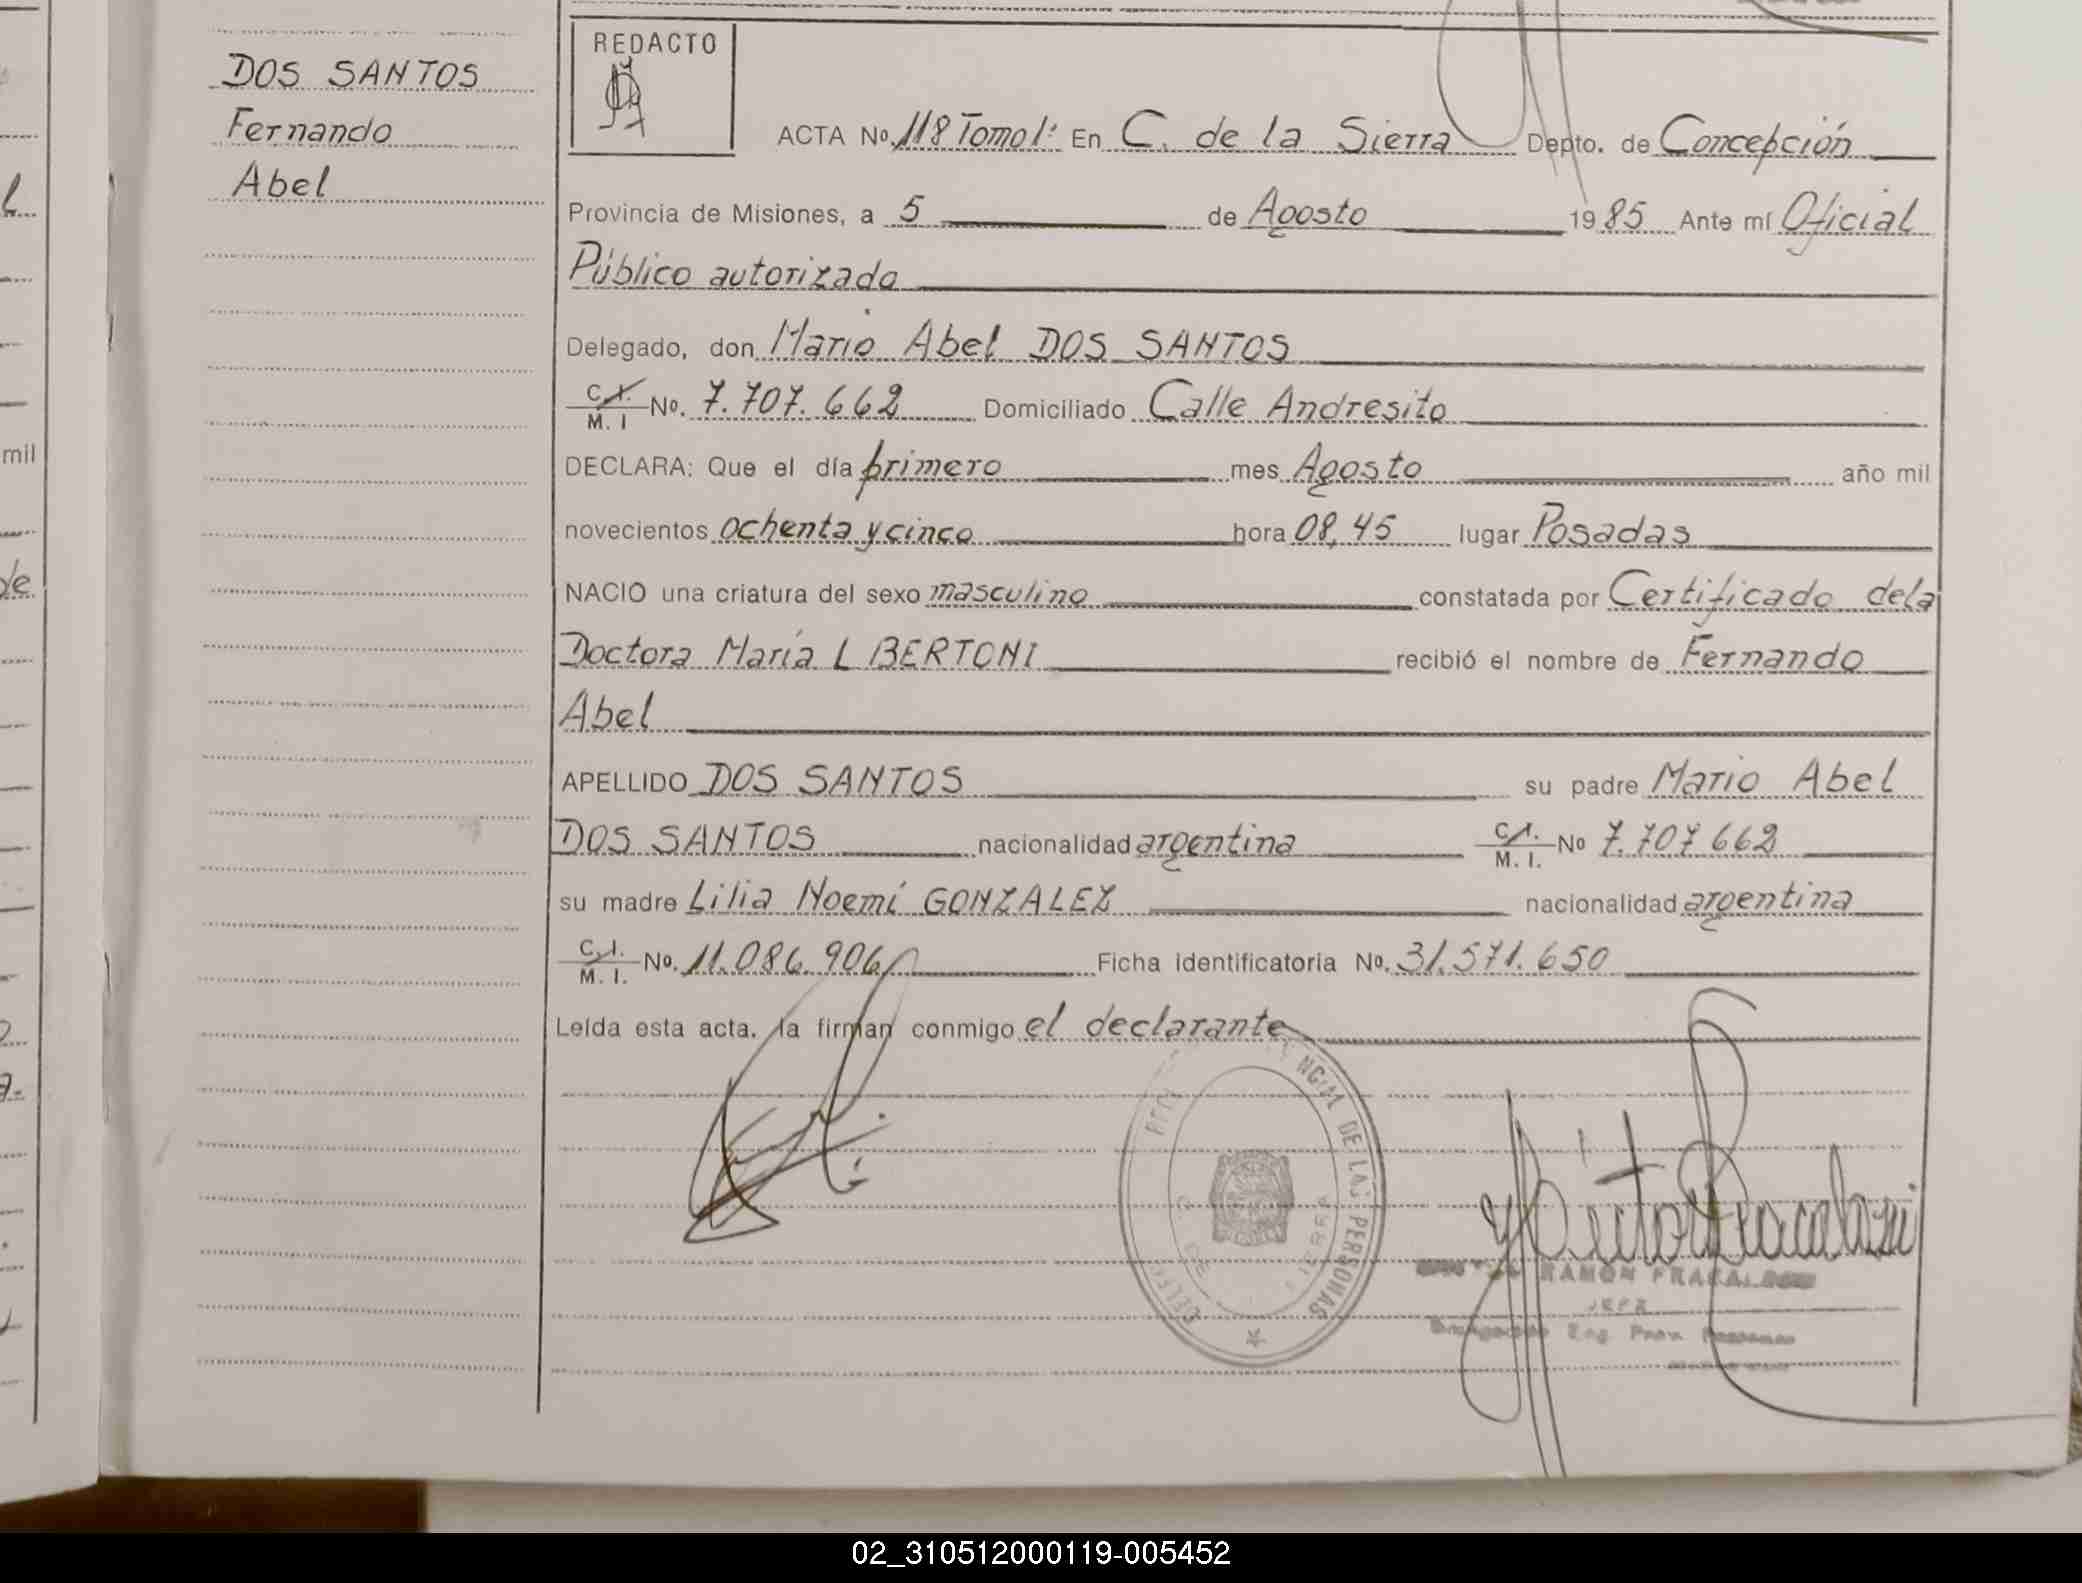 DOS SANTOS
Fernando
Abel
REDACTO
ACTA No. 118 Tomo 1º En C. de la Sierra Depto. de Concepción
Provincia de Misiones, a 5 de Agosto 1985 Ante mí Oficial
Público autorizado
Delegado, don Mario Abel DOS SANTOS
C.I. M. I No. 7.707.662 Domiciliado Calle Andresito
DECLARA: Que el día primero mes Agosto año mil
novecientos ochenta y cinco hora 08,45 lugar Posadas
NACIO una criatura del sexo masculino constatada por Certificado de la
Doctora María L BERTONI recibió el nombre de Fernando
Abel
APELLIDO DOS SANTOS su padre Mario Abel
DOS SANTOS nacionalidad argentina C.I. M. I. No 7.707.662
su madre Lilia Noemí GONZALEZ nacionalidad argentina
C.I. M. I. No. 11.086.906 Ficha identificatoria No. 31.571.650
Leída esta acta, la firman conmigo el declarante
DE LAS PERSONAS
SIERRA
RAMON
JEFE
mil
de
02_310512000119-005452